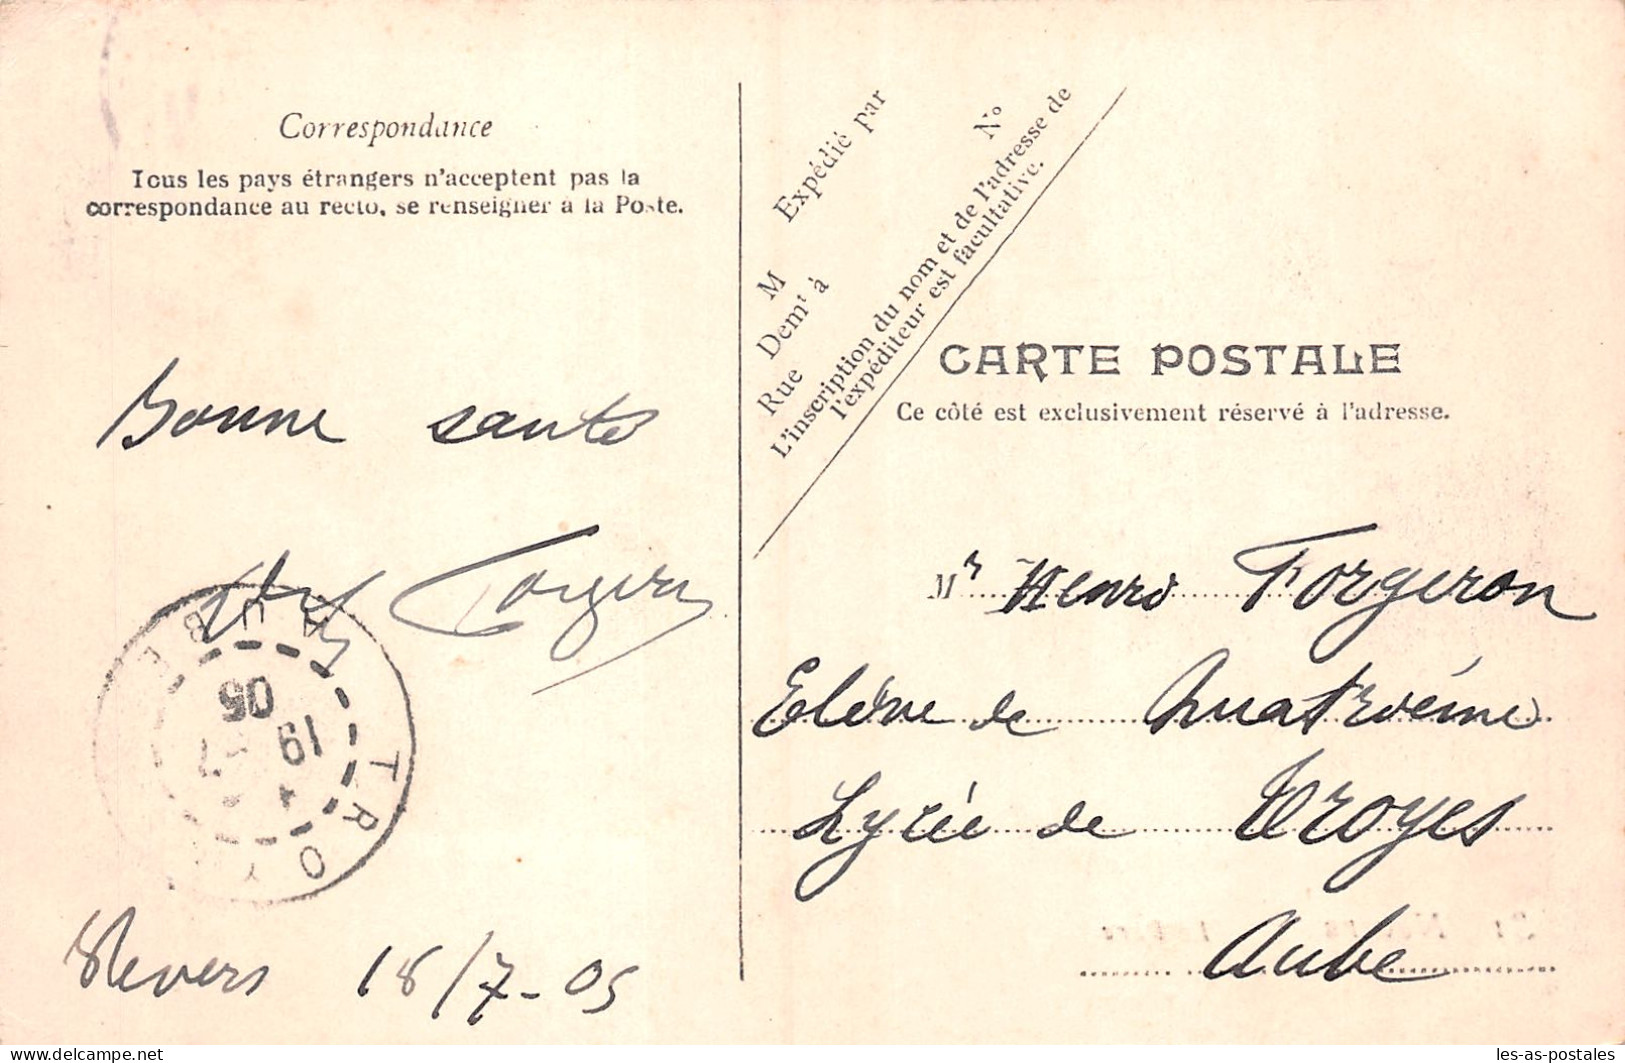 Correspondance
Tous les pays étrangers n'acceptent pas la
correspondance au recto, se renseigner à la Poste.
Bonne santé
Nevers 18/7-05
TROY
AUBE
19 7
05
Expédié par
M
Demt à
Rue
No
L'inscription du nom et de l'adresse de
l'expéditeur est facultative.
CARTE POSTALE
Ce côté est exclusivement réservé à l'adresse.
Mr Henri Forgeron
Elève de Quatrième
Lycée de Troyes
Aube
delcampe.net
les-as-postales